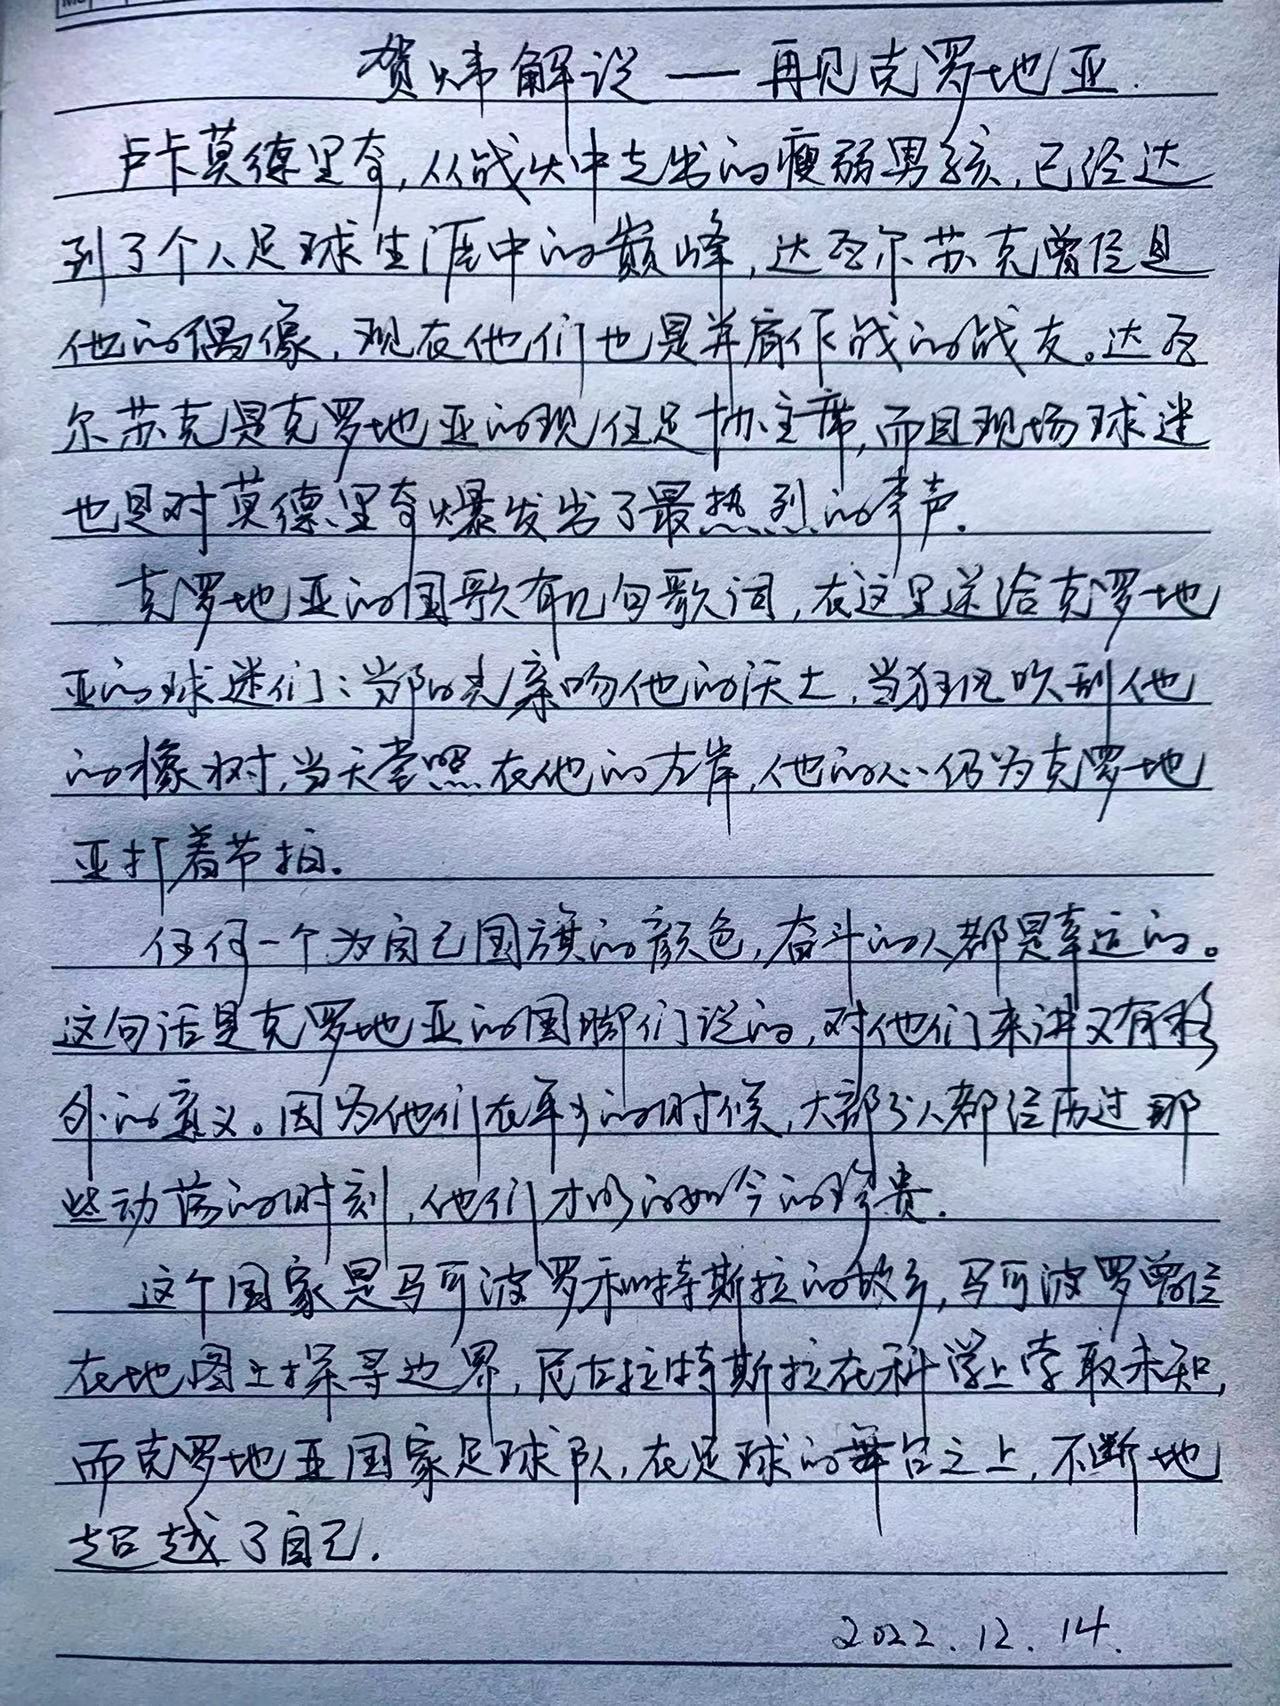 贺炜解说——再见克罗地亚.
卢卡莫德里奇,从战火中走出的瘦弱男孩,已经达
到了个人足球生涯中的巅峰,达沃尔苏克曾经是
他的偶像,现在他们也是并肩作战的战友。达沃
尔苏克是克罗地亚的现任足协主席,而且现场球迷
也是对莫德里奇爆发出了最热烈的掌声.
克罗地亚的国歌有几句歌词,在这里送给克罗地
亚的球迷们:当阳光亲吻他的沃土,当狂风吹到他
的橡树,当天堂照在他的左岸,他的心仍为克罗地
亚打着节拍.
任何一个为自己国旗的颜色,奋斗的人都是幸运的。
这句话是克罗地亚的国脚们说的,对他们来讲又有格
外的意义。因为他们在年少的时候,大部分人都经历过那
些动荡的时刻,他们才明白如今的珍贵.
这个国家是马可波罗和特斯拉的故乡,马可波罗曾经
在地图上探寻边界,尼古拉特斯拉在科学上掌取未知,
而克罗地亚国家足球队,在足球的舞台之上,不断地
超越了自己.
2022.12.14.